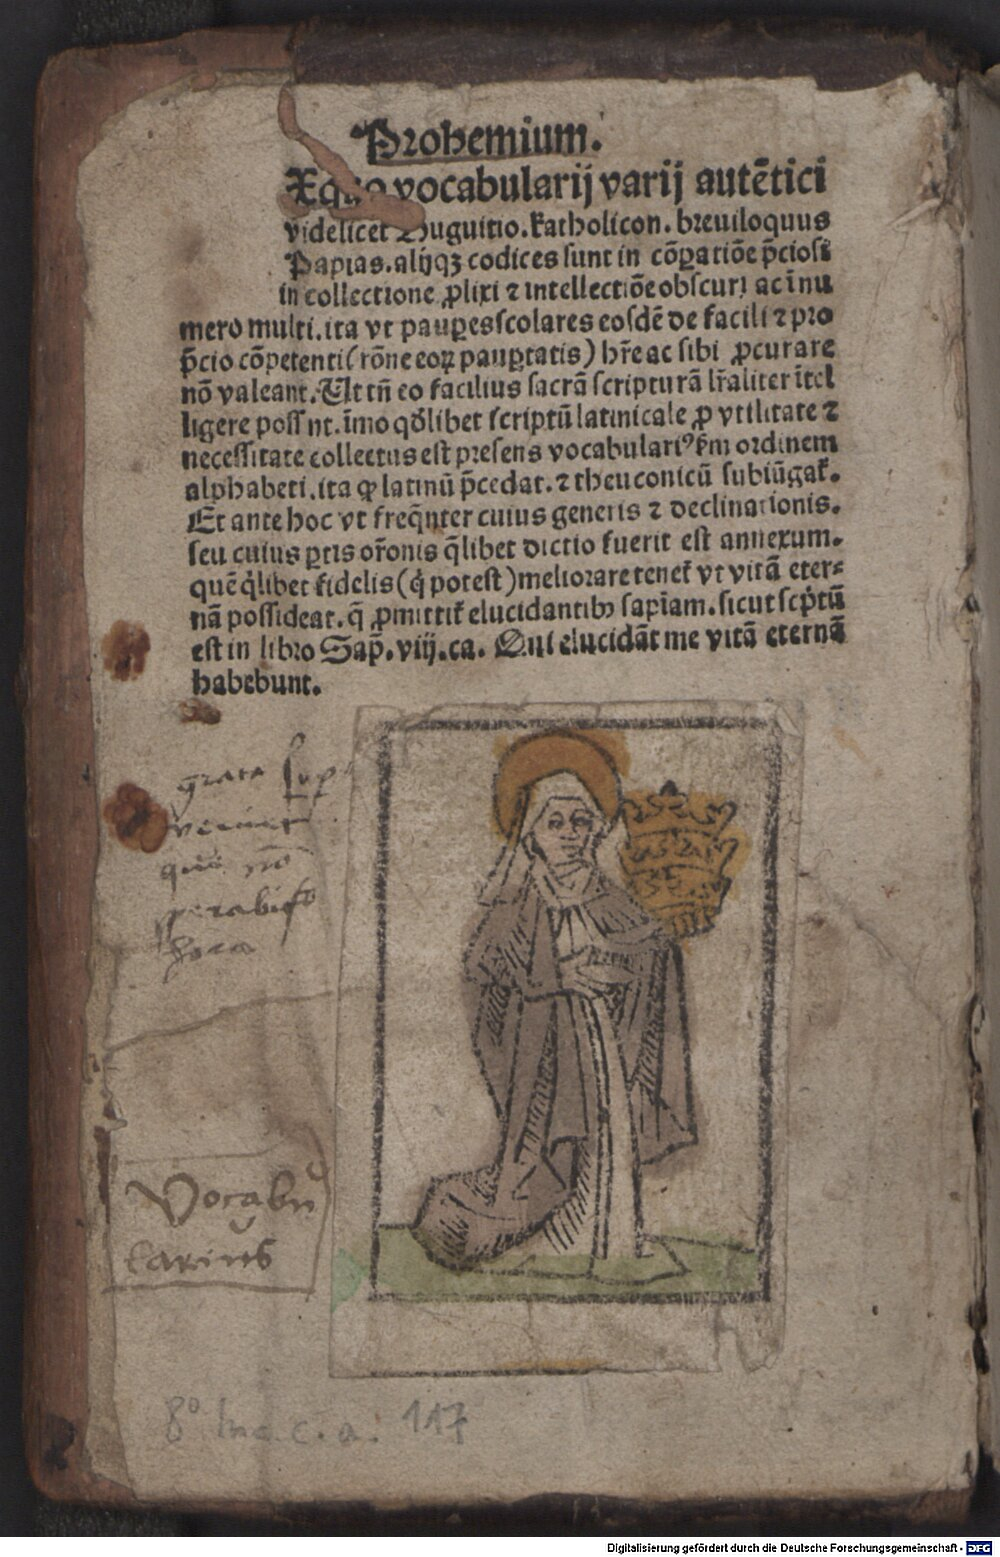 Prohemium.
Xquo vocabularij varij autētici
videlicet Huguitio. katholicon. breuiloquus
Papias. alijqꝫ codices sunt in cōꝑatiōe p̄ciosi
in collectione ꝓlixi ⁊ intellectiōe obscuri ac ī nu
mero multi. ita vt pauꝑes scolares eosdē de facili ⁊ pro
p̄cio cōpetenti (rōne eoꝝ pauꝑtatis) hr̄e ac sibi ꝓcurare
nō valeant. Et tn̄ eo facilius sacrā scripturā lr̄aliter ītel
ligere possint. īmo qd̄libet scriptū latinicale ꝓ vtilitate ⁊
necessitate collectus est presens vocabulariꝰ ẜm ordinem
alphabeti. ita ꝙ latinū p̄cedat. ⁊ theuconicū subiūgat̄.
Et ante hoc vt freq̄nter cuius generis ⁊ declinationis.
seu cuius ꝑtis or̄onis q̄libet dictio fuerit est annexum.
quē q̄libet fidelis (q̄ potest) meliorare tenet̄ vt vitā eter⸗
nā possideat. q̄ ꝓmittit̄ elucidantibꝰ sapīam. sicut scp̄tū
est in libro Sap̄. viij. ca. Qui elucidāt me vitā eternā
habebunt.
Vocabu
larius
8° Inc. c. a. 117
Digitalisierung gefördert durch die Deutsche Forschungsgemeinschaft - DFG